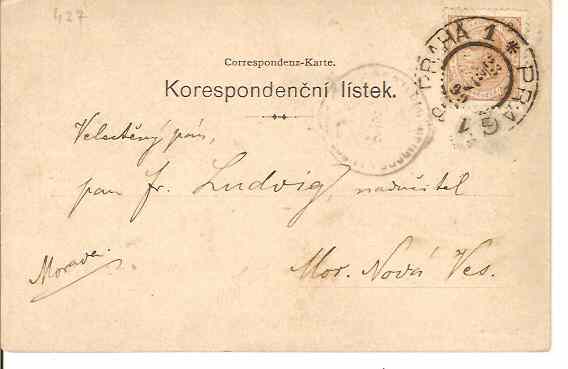 427
Correspondenz-Karte.
Korespondenční lístek.
PRAHA 1 * PRAG 1
Velectěný pán,
pan fr. Ludvig, nadučitel
Morava.
Mor. Nová Ves.